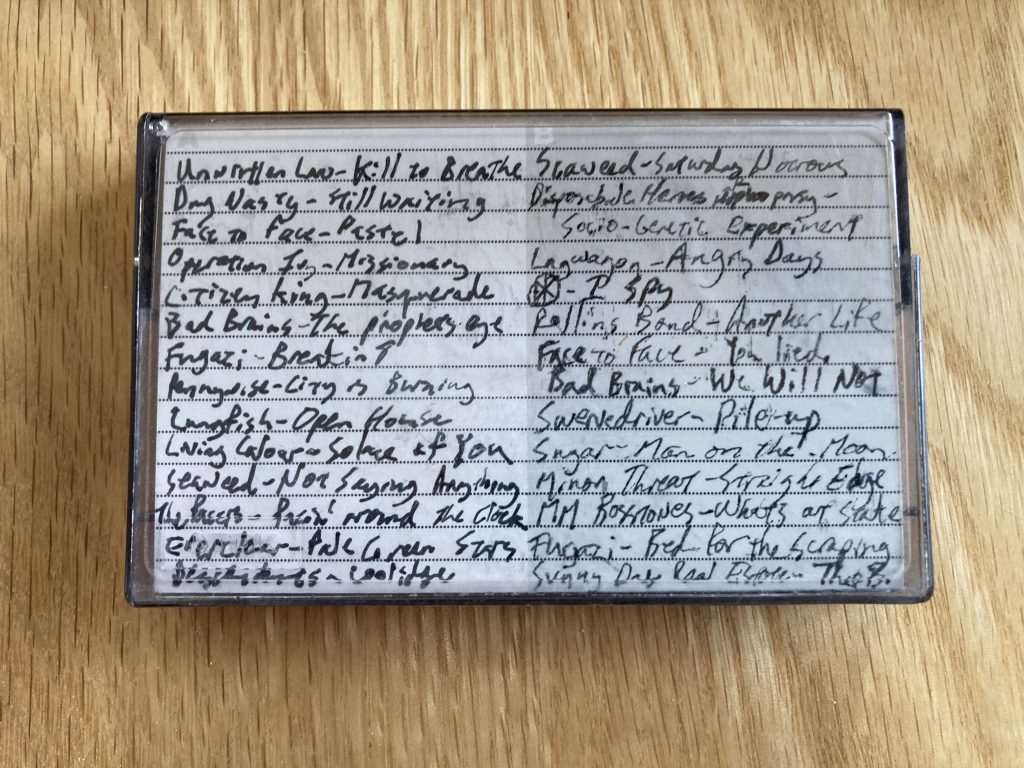 Unwritten Law - Kill to Breathe
Dag Nasty - Still Waiting
Face to Face - Pastel
Operation Ivy - Missionary
Citizen King - Masquerade
Bad Brains - The prophets eye
Fugazi - Break in
Pennywise - City is Burning
Lungfish - Open House
Living Colour - Solace of You
Seaweed - Not Saying Anything
The Pacers - Pacin' around the Clock
Everclear - Pale Green Stars
- Coolidge
B
Seaweed - Saturday Nitrous
Disposable Heroes Hiphoprisy -
Socio-Genetic Experiment
Lagwagon - Angry Days
- I Spy
Rollins Band - Another Life
Face to Face - You lied.
Bad Brains - We Will Not
Swervedriver - Pile-up
Sugar - Man on the Moon
Minor Threat - Straight Edge
MM Bosstones - Whats at Stake
Fugazi - Bed for the Scraping
Sunny Day Real Estate - Theo B.